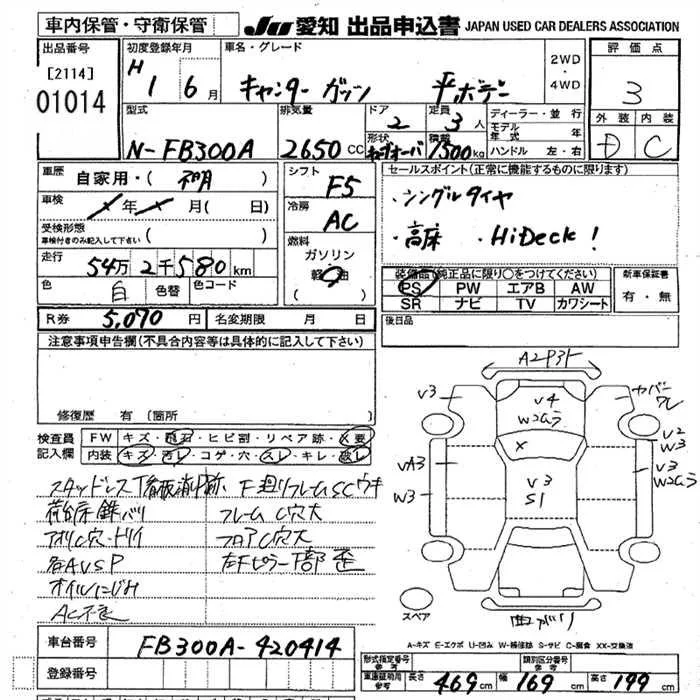 車内保管・守衛保管
JU 愛知 出品申込書 JAPAN USED CAR DEALERS ASSOCIATION
出品番号 [2114] 01014
初度登録年月 H 1 6月
車名・グレード キャンター ガッツ 平ボデー
2WD・4WD
評価点 3
外装 D 内装 C
型式 N-FB300A
排気量 2650 CC
ドア 2
形状
定員 3人
積載 1500kg
ディーラー・並行
モデル年式 年
ハンドル 左・右
車歴 自家用・( 不明 )
シフト F5
セールスポイント(正常に機能するものに限ります)
・シングルタイヤ
・高床 ・HiDeck!
車検 年 月( 日)
冷房 AC
受検形態 車検付きのみ記入して下さい ( )
燃料 ガソリン 軽油
走行 54万2千580km
色 白 色替 色コード
装備品(純正品に限り○をつけてください)
PS PW エアB AW
SR ナビ TV カワシート
新車保証書 有・無
R券 5,070円 名変期限 月 日
後日品
注意事項申告欄(不具合内容等は具体的に記入して下さい)
修復歴 有 〔箇所
検査員記入欄
FW キズ・飛石・ヒビ割・リペア跡・X要
内装 キズ・汚レ・コゲ・穴・スレ・キレ・破レ
スタッドレス
荷台床鉄バリ フレームC穴大
アオリC穴・トリイ フロアC穴大
各AUSP 左Fピラー下部歪
オイルにじみ
AC不良
V3
V4
W2
V2
W3
VA3
W3
V3
S1
V3
スペア
曲ガリ
A-キズ E-エクボ U-凹み W-補修跡 S-サビ C-腐食 XX-交換済
車台番号 FB300A-420414
登録番号
形式指定番号 参考
類別区分番号 参考
車庫証明用 参考 長さ 469cm 幅 169cm 高さ 199cm